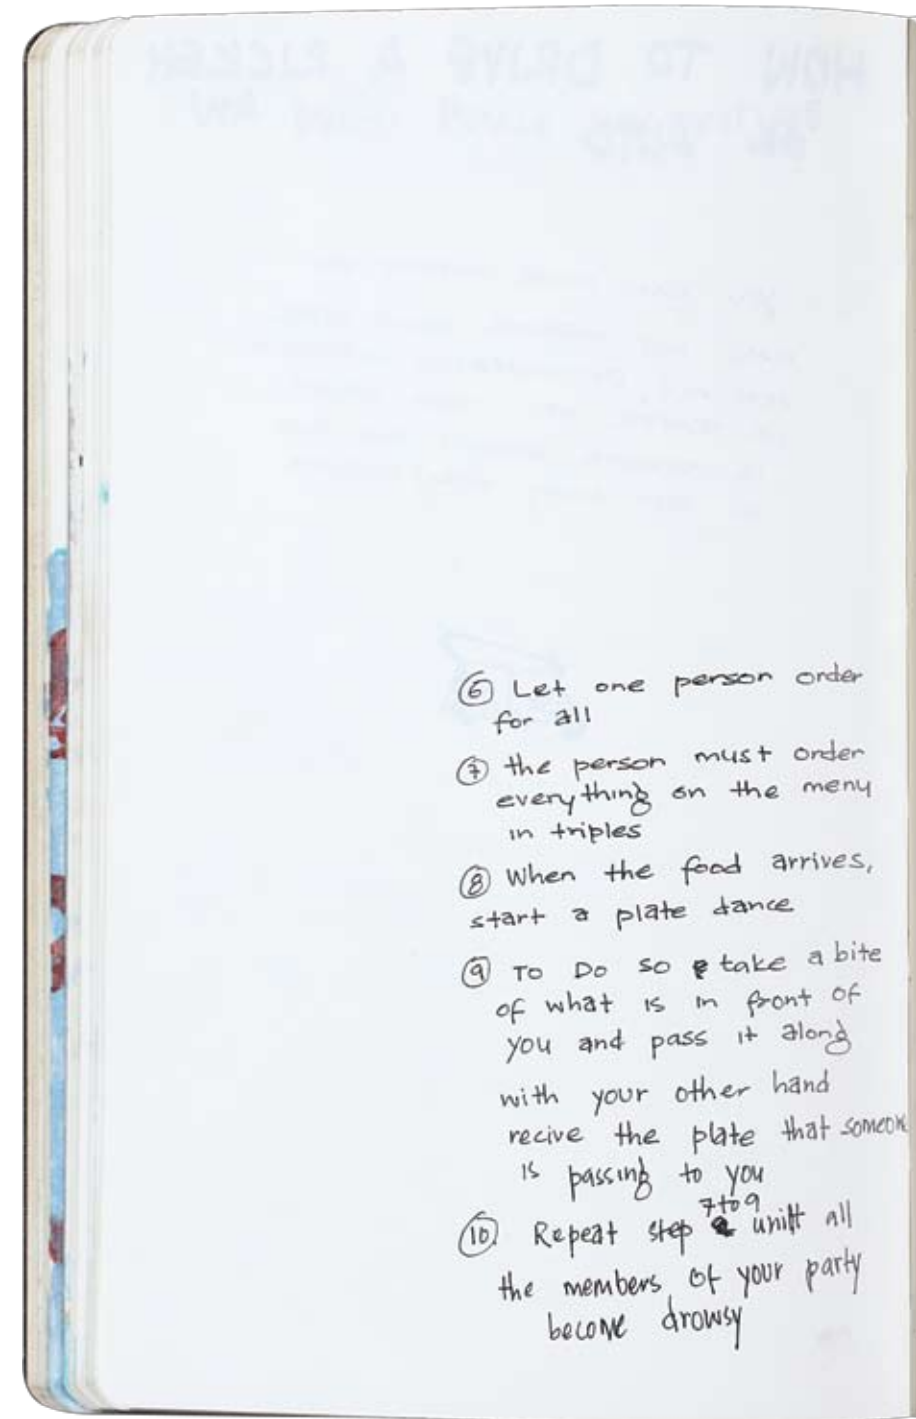 HOW TO DRIVE A
⑥ Let one person order
for all
⑦ the person must order
everything on the meny
in triples
⑧ When the food arrives,
start a plate dance
⑨ To Do so take a bite
of what is in front of
you and pass it along
with your other hand
recive the plate that someone
is passing to you
7 to 9
⑩ Repeat step unitt all
the members of your party
become drowsy